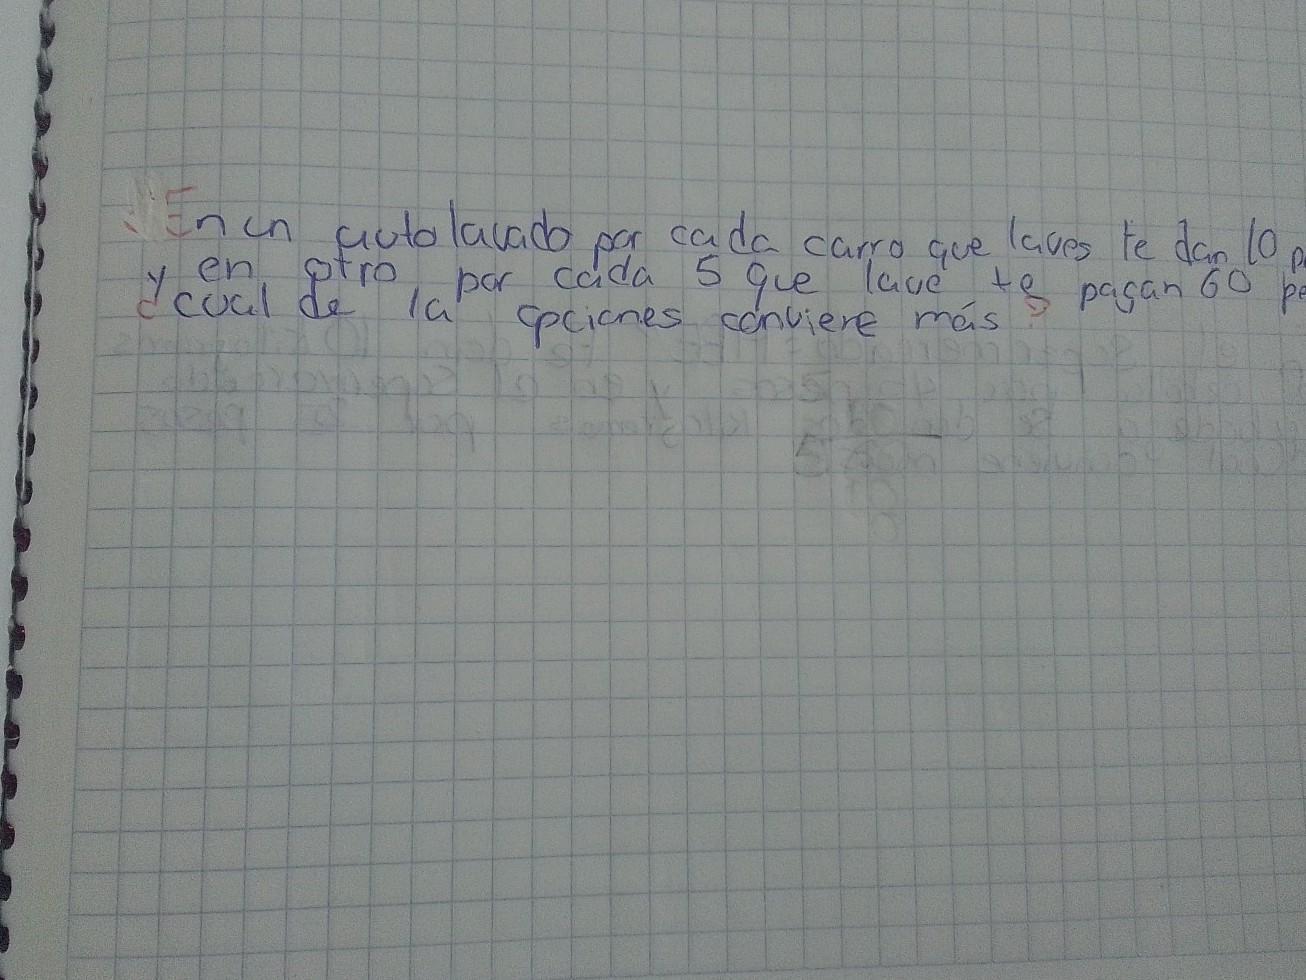 En un autolavado por cada carro que laves te dan 10 p
y en otro por cada 5 que lave te pagan 60 pe
¿cual de la opciones conviere más?